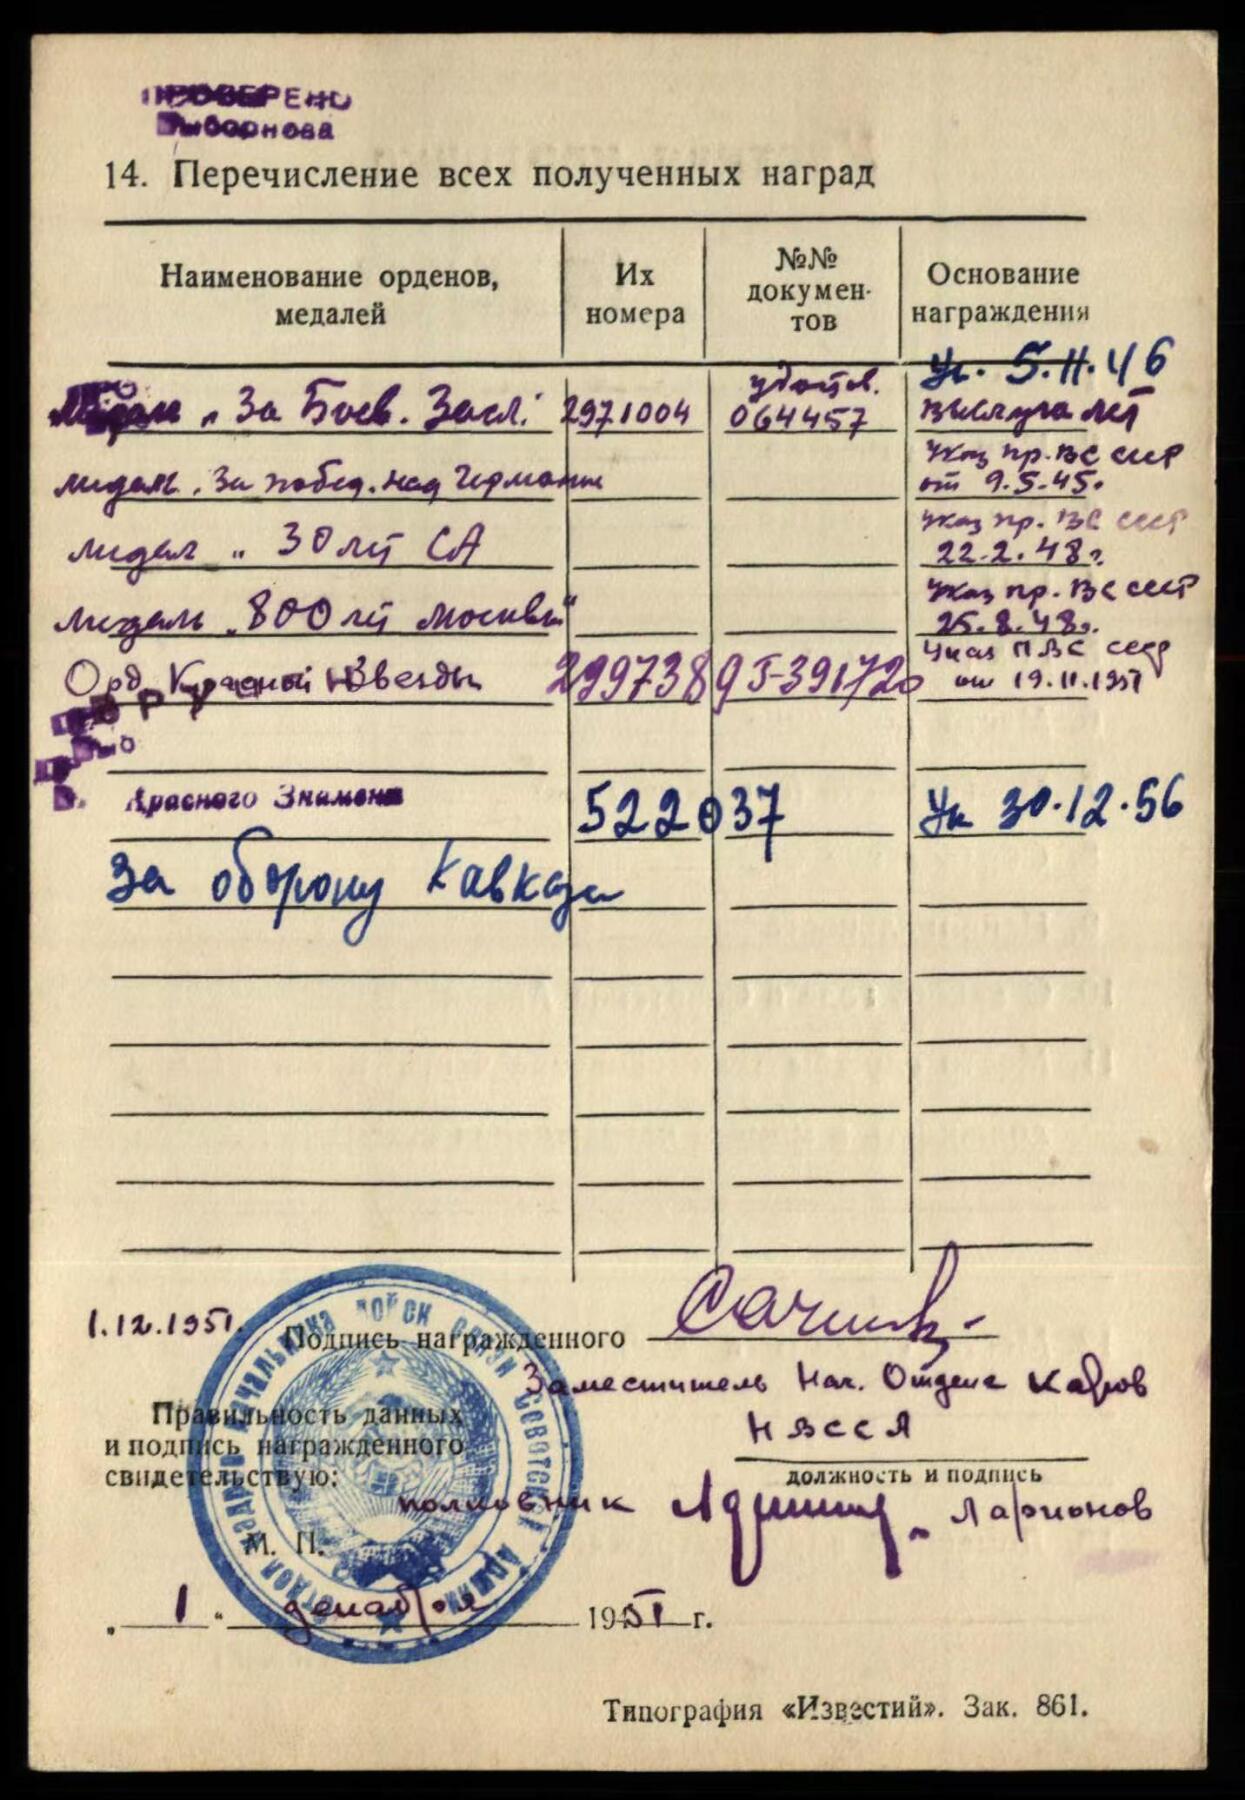 ПРОВЕРЕНО
Выборнова
14. Перечисление всех полученных наград
Наименование орденов, медалей
Их номера
№№ докумен-тов
Основание награждения
Ук. 5.11.46
Медаль „За Боев. Засл." 2971004 удостов. 064457 выслуга лет
медаль „За побед. над Германи Указ пр. ВС ссср от 9.5.45.
медал „30 лет СА Указ пр. ВС ссср 22.2.48г.
медаль „800 лет Москвы" Указ пр. ВС ссср 25.8.48г.
Орд Красной Звезды 2997389 Д-391720 Указ ПВС ссср от 19.11.1951
Красного Знамени 522037 Ук 30.12.56
За оборону Кавказа
1.12.1951.
Подпись награжденного
Заместитель Нач. Отдела кадров
НВССА
Правильность данных
и подпись награжденного
свидетельствую:
должность и подпись
полковник Ларионов
М. П.
„ 1 " декабря 1951 г.
ОТДЕЛ КАДРОВ НАЧАЛЬНИКА ВОЙСК СВЯЗИ СОВЕТСКОЙ АРМИИ
Типография «Известий». Зак. 861.